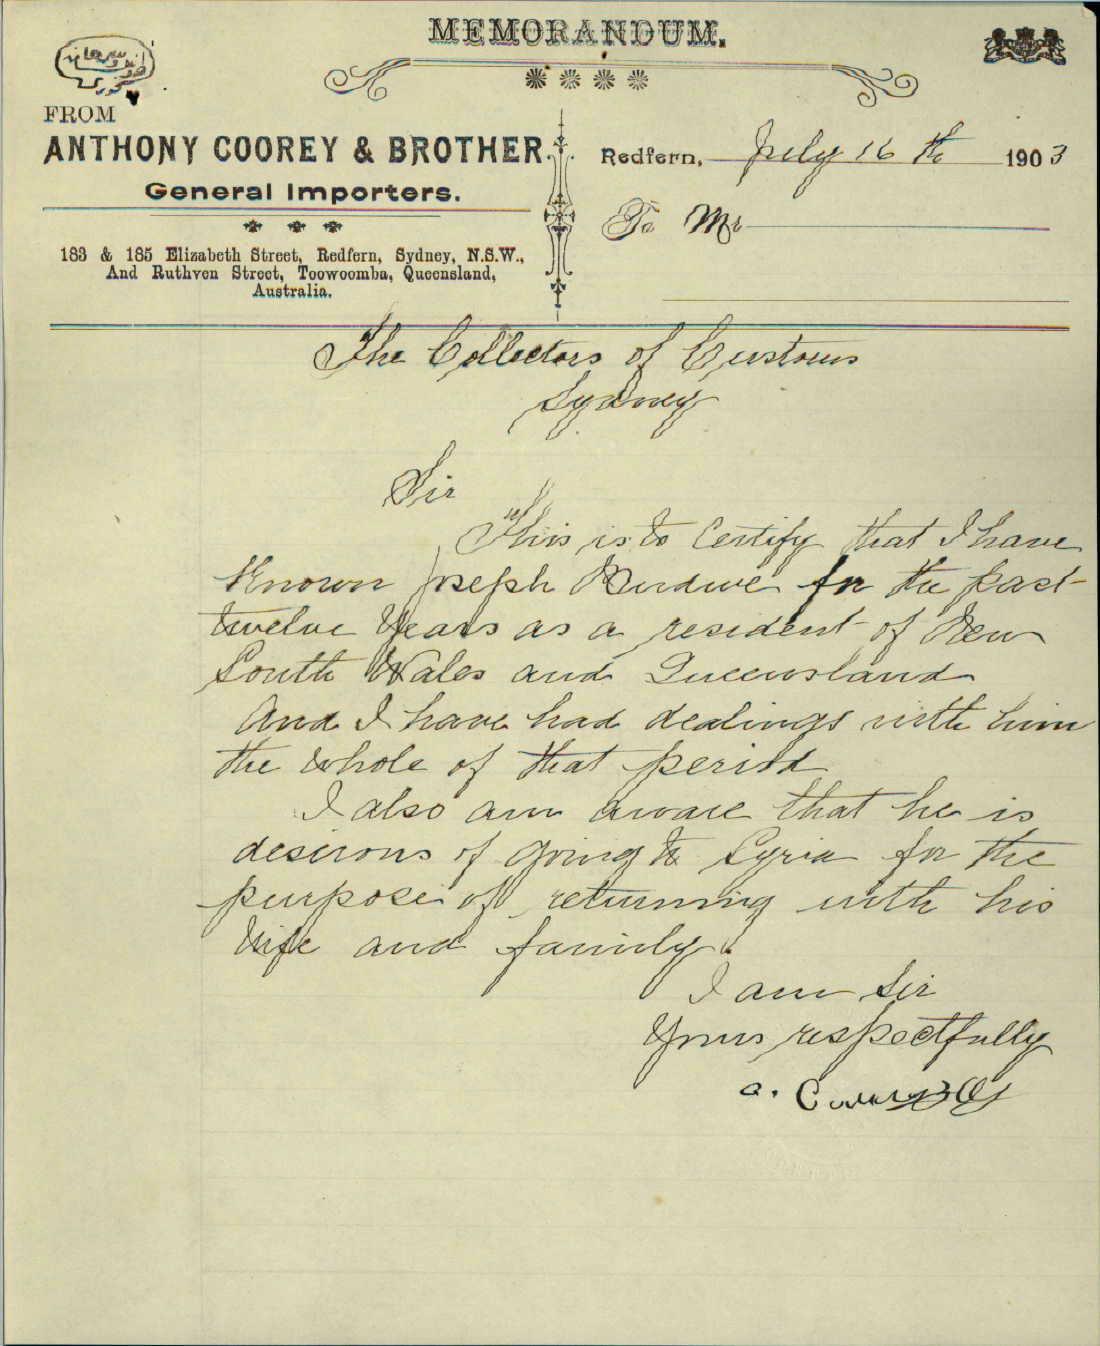 MEMORANDUM.
FROM
ANTHONY COOREY & BROTHER.
General Importers.
183 & 185 Elizabeth Street, Redfern, Sydney, N.S.W.,
And Ruthven Street, Toowoomba, Queensland,
Australia.
Redfern, July 16 th 1903
To Mr
The Collectors of Customs
Sydney
Sir
This is to Certify that I have
Known Joseph for the past
twelve Years as a resident of New
South Wales and Queensland
And I have had dealings with him
the whole of that period
I also am aware that he is
desirous of going to Syria for the
purpose of returning with his
Wife and family.
I am Sir
Yours respectfully
a.